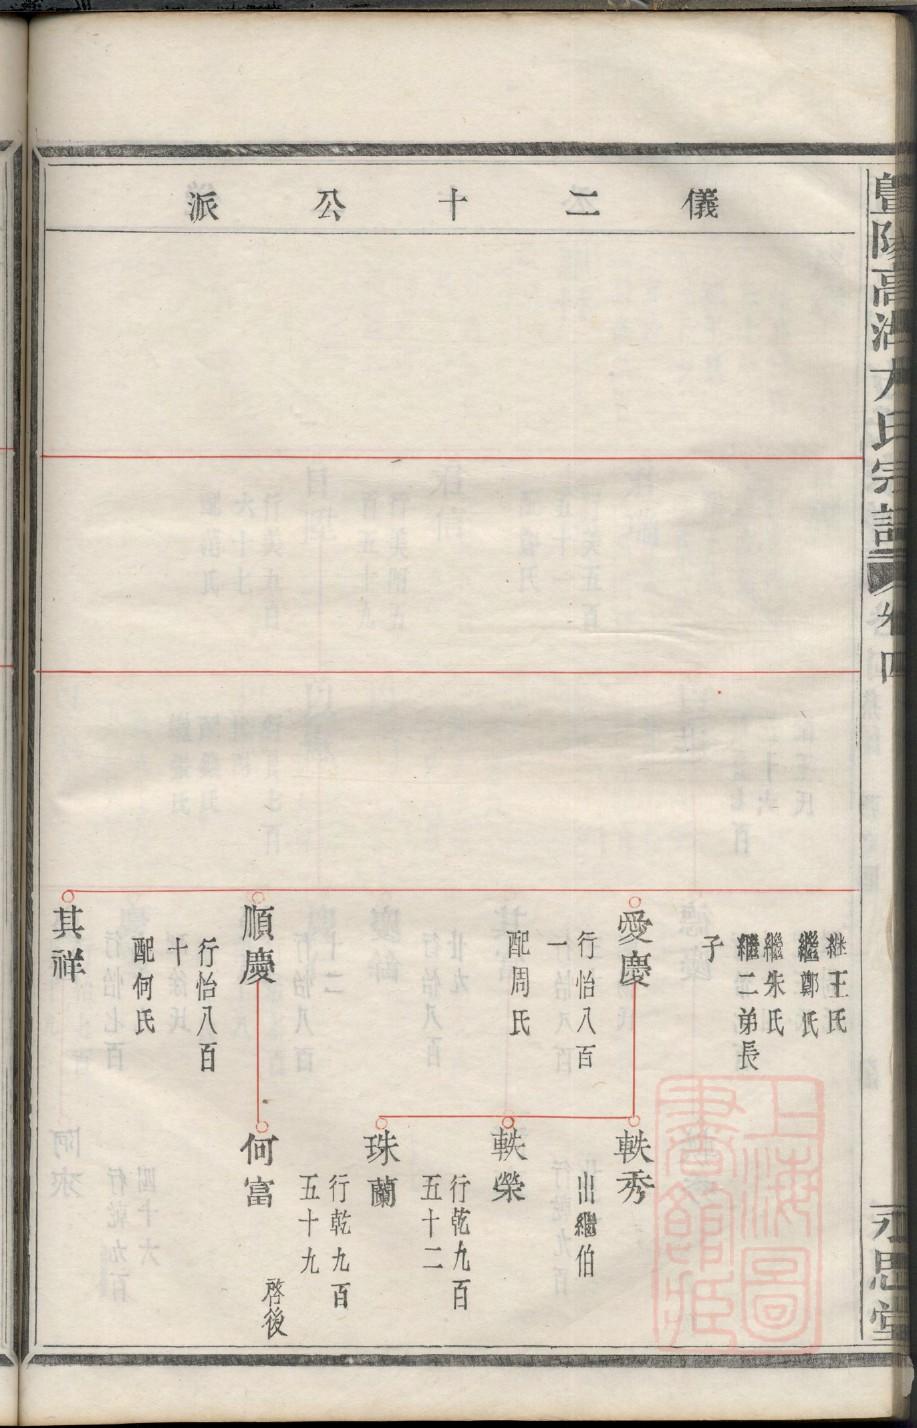 儀二十公派
暨陽高湖方氏宗譜
卷四
永思堂
継王氏
繼鄭氏
繼朱氏
繼二弟長
子
愛慶
行怡八百
一
配周氏
順慶
行怡八百
十
配何氏
其祥
軼秀
出繼伯
軼榮
行乾九百
五十二
珠蘭
行乾九百
五十九
何富
啓後
上海圖書館藏